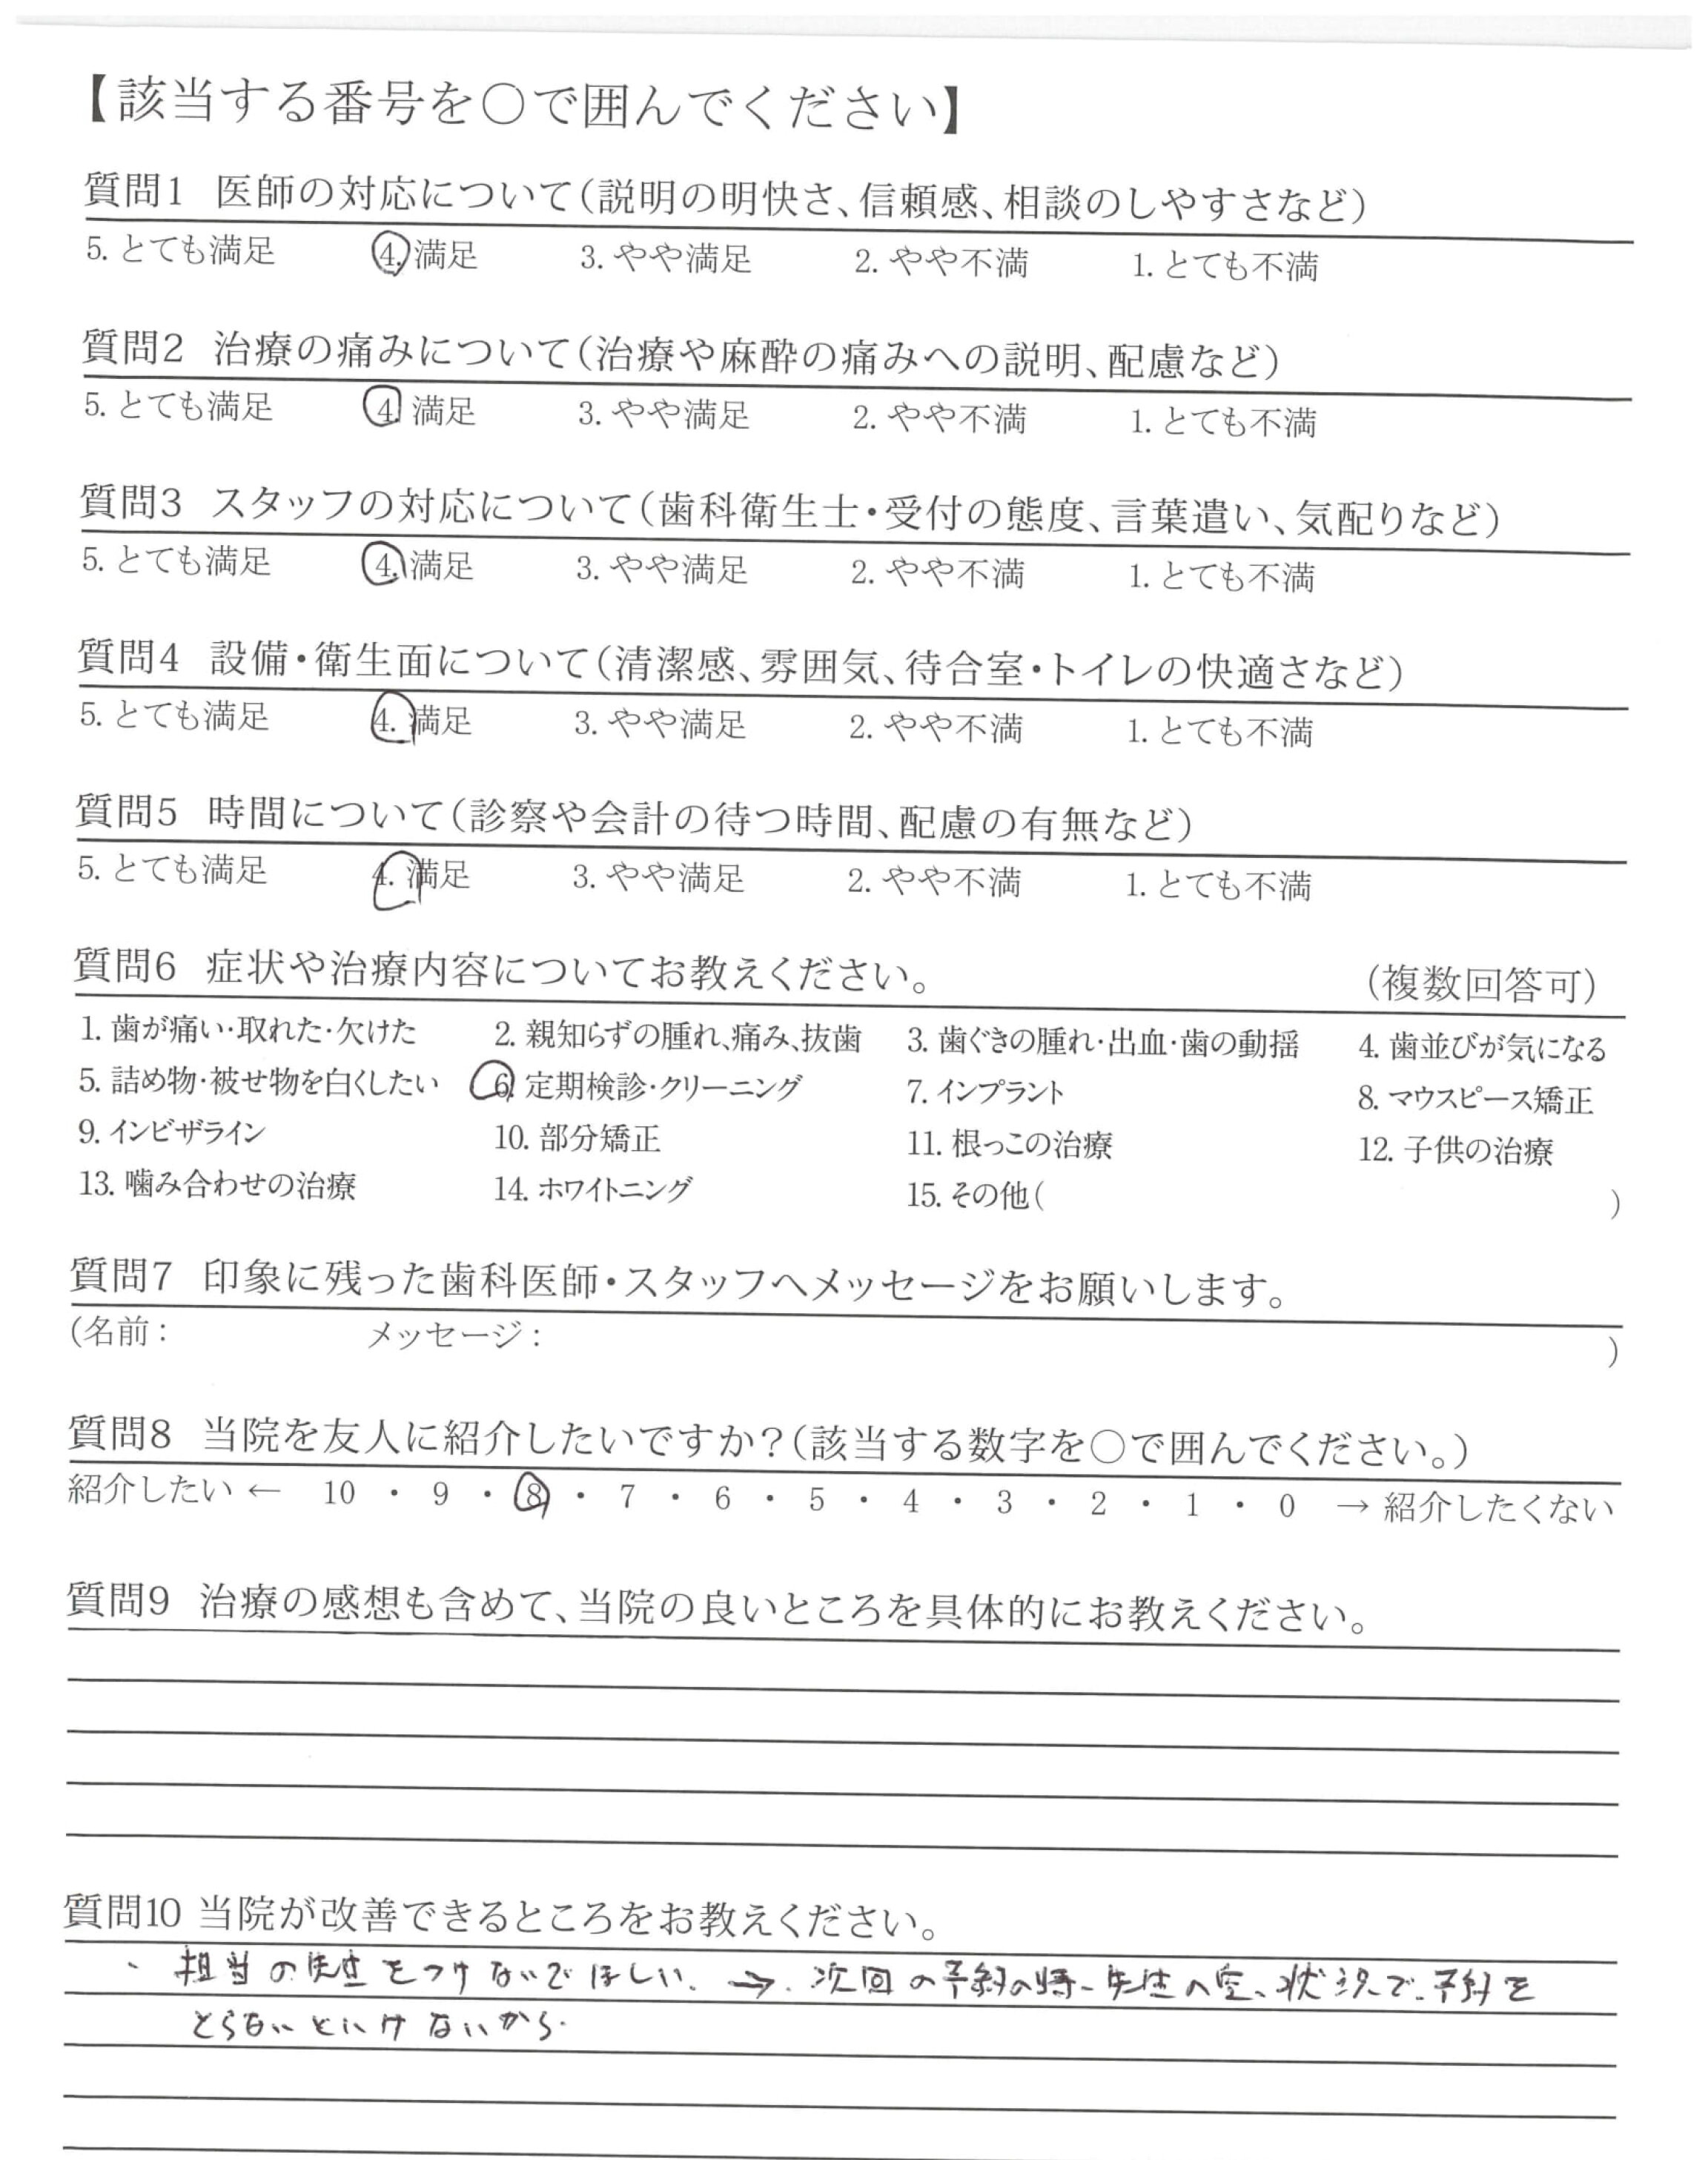 【該当する番号を○で囲んでください】
質問1 医師の対応について(説明の明快さ、信頼感、相談のしやすさなど)
5. とても満足 4. 満足 3. やや満足 2. やや不満 1. とても不満
質問2 治療の痛みについて(治療や麻酔の痛みへの説明、配慮など)
5. とても満足 4. 満足 3. やや満足 2. やや不満 1. とても不満
質問3 スタッフの対応について(歯科衛生士・受付の態度、言葉遣い、気配りなど)
5. とても満足 4. 満足 3. やや満足 2. やや不満 1. とても不満
質問4 設備・衛生面について(清潔感、雰囲気、待合室・トイレの快適さなど)
5. とても満足 4. 満足 3. やや満足 2. やや不満 1. とても不満
質問5 時間について(診察や会計の待つ時間、配慮の有無など)
5. とても満足 4. 満足 3. やや満足 2. やや不満 1. とても不満
質問6 症状や治療内容についてお教えください。 (複数回答可)
1. 歯が痛い・取れた・欠けた 2. 親知らずの腫れ、痛み、抜歯 3. 歯ぐきの腫れ・出血・歯の動揺 4. 歯並びが気になる
5. 詰め物・被せ物を白くしたい 6. 定期検診・クリーニング 7. インプラント 8. マウスピース矯正
9. インビザライン 10. 部分矯正 11. 根っこの治療 12. 子供の治療
13. 噛み合わせの治療 14. ホワイトニング 15. その他( )
質問7 印象に残った歯科医師・スタッフへメッセージをお願いします。
(名前： メッセージ： )
質問8 当院を友人に紹介したいですか？(該当する数字を○で囲んでください。)
紹介したい ← 10 ・ 9 ・ 8 ・ 7 ・ 6 ・ 5 ・ 4 ・ 3 ・ 2 ・ 1 ・ 0 → 紹介したくない
質問9 治療の感想も含めて、当院の良いところを具体的にお教えください。
質問10 当院が改善できるところをお教えください。
・ 担当の先生をつけないでほしい。→ 次回の予約の時、先生の空、状況で予約を
とらないといけないから。